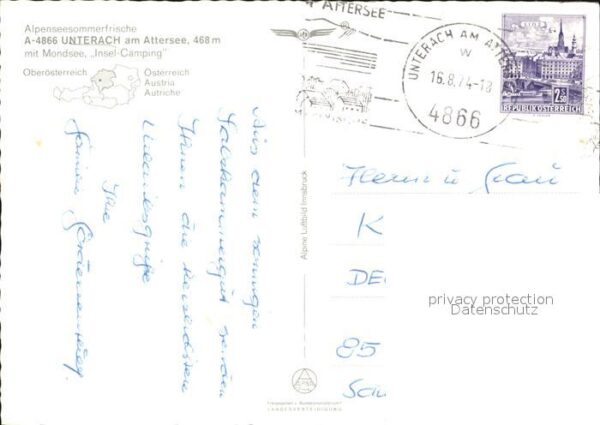 Alpenseesommerfrische
A-4866 UNTERACH am Attersee, 468 m
mit Mondsee, „Insel-Camping"
Oberösterreich
Österreich
Austria
Autriche
ATTERSEE
UNTERACH AM ATTERSEE
w
16.8.74-18
4866
2.50
REPUBLIK ÖSTERREICH
Aus dem sonnigen
Salzkammergut senden
Ihnen die herzlichsten
Urlaubsgrüße
Ihre
Familie
Alpine Luftbild Innsbruck
Herrn u Frau
K
DE
85
privacy protection
Datenschutz
LANDESVERTEIDIGUNG